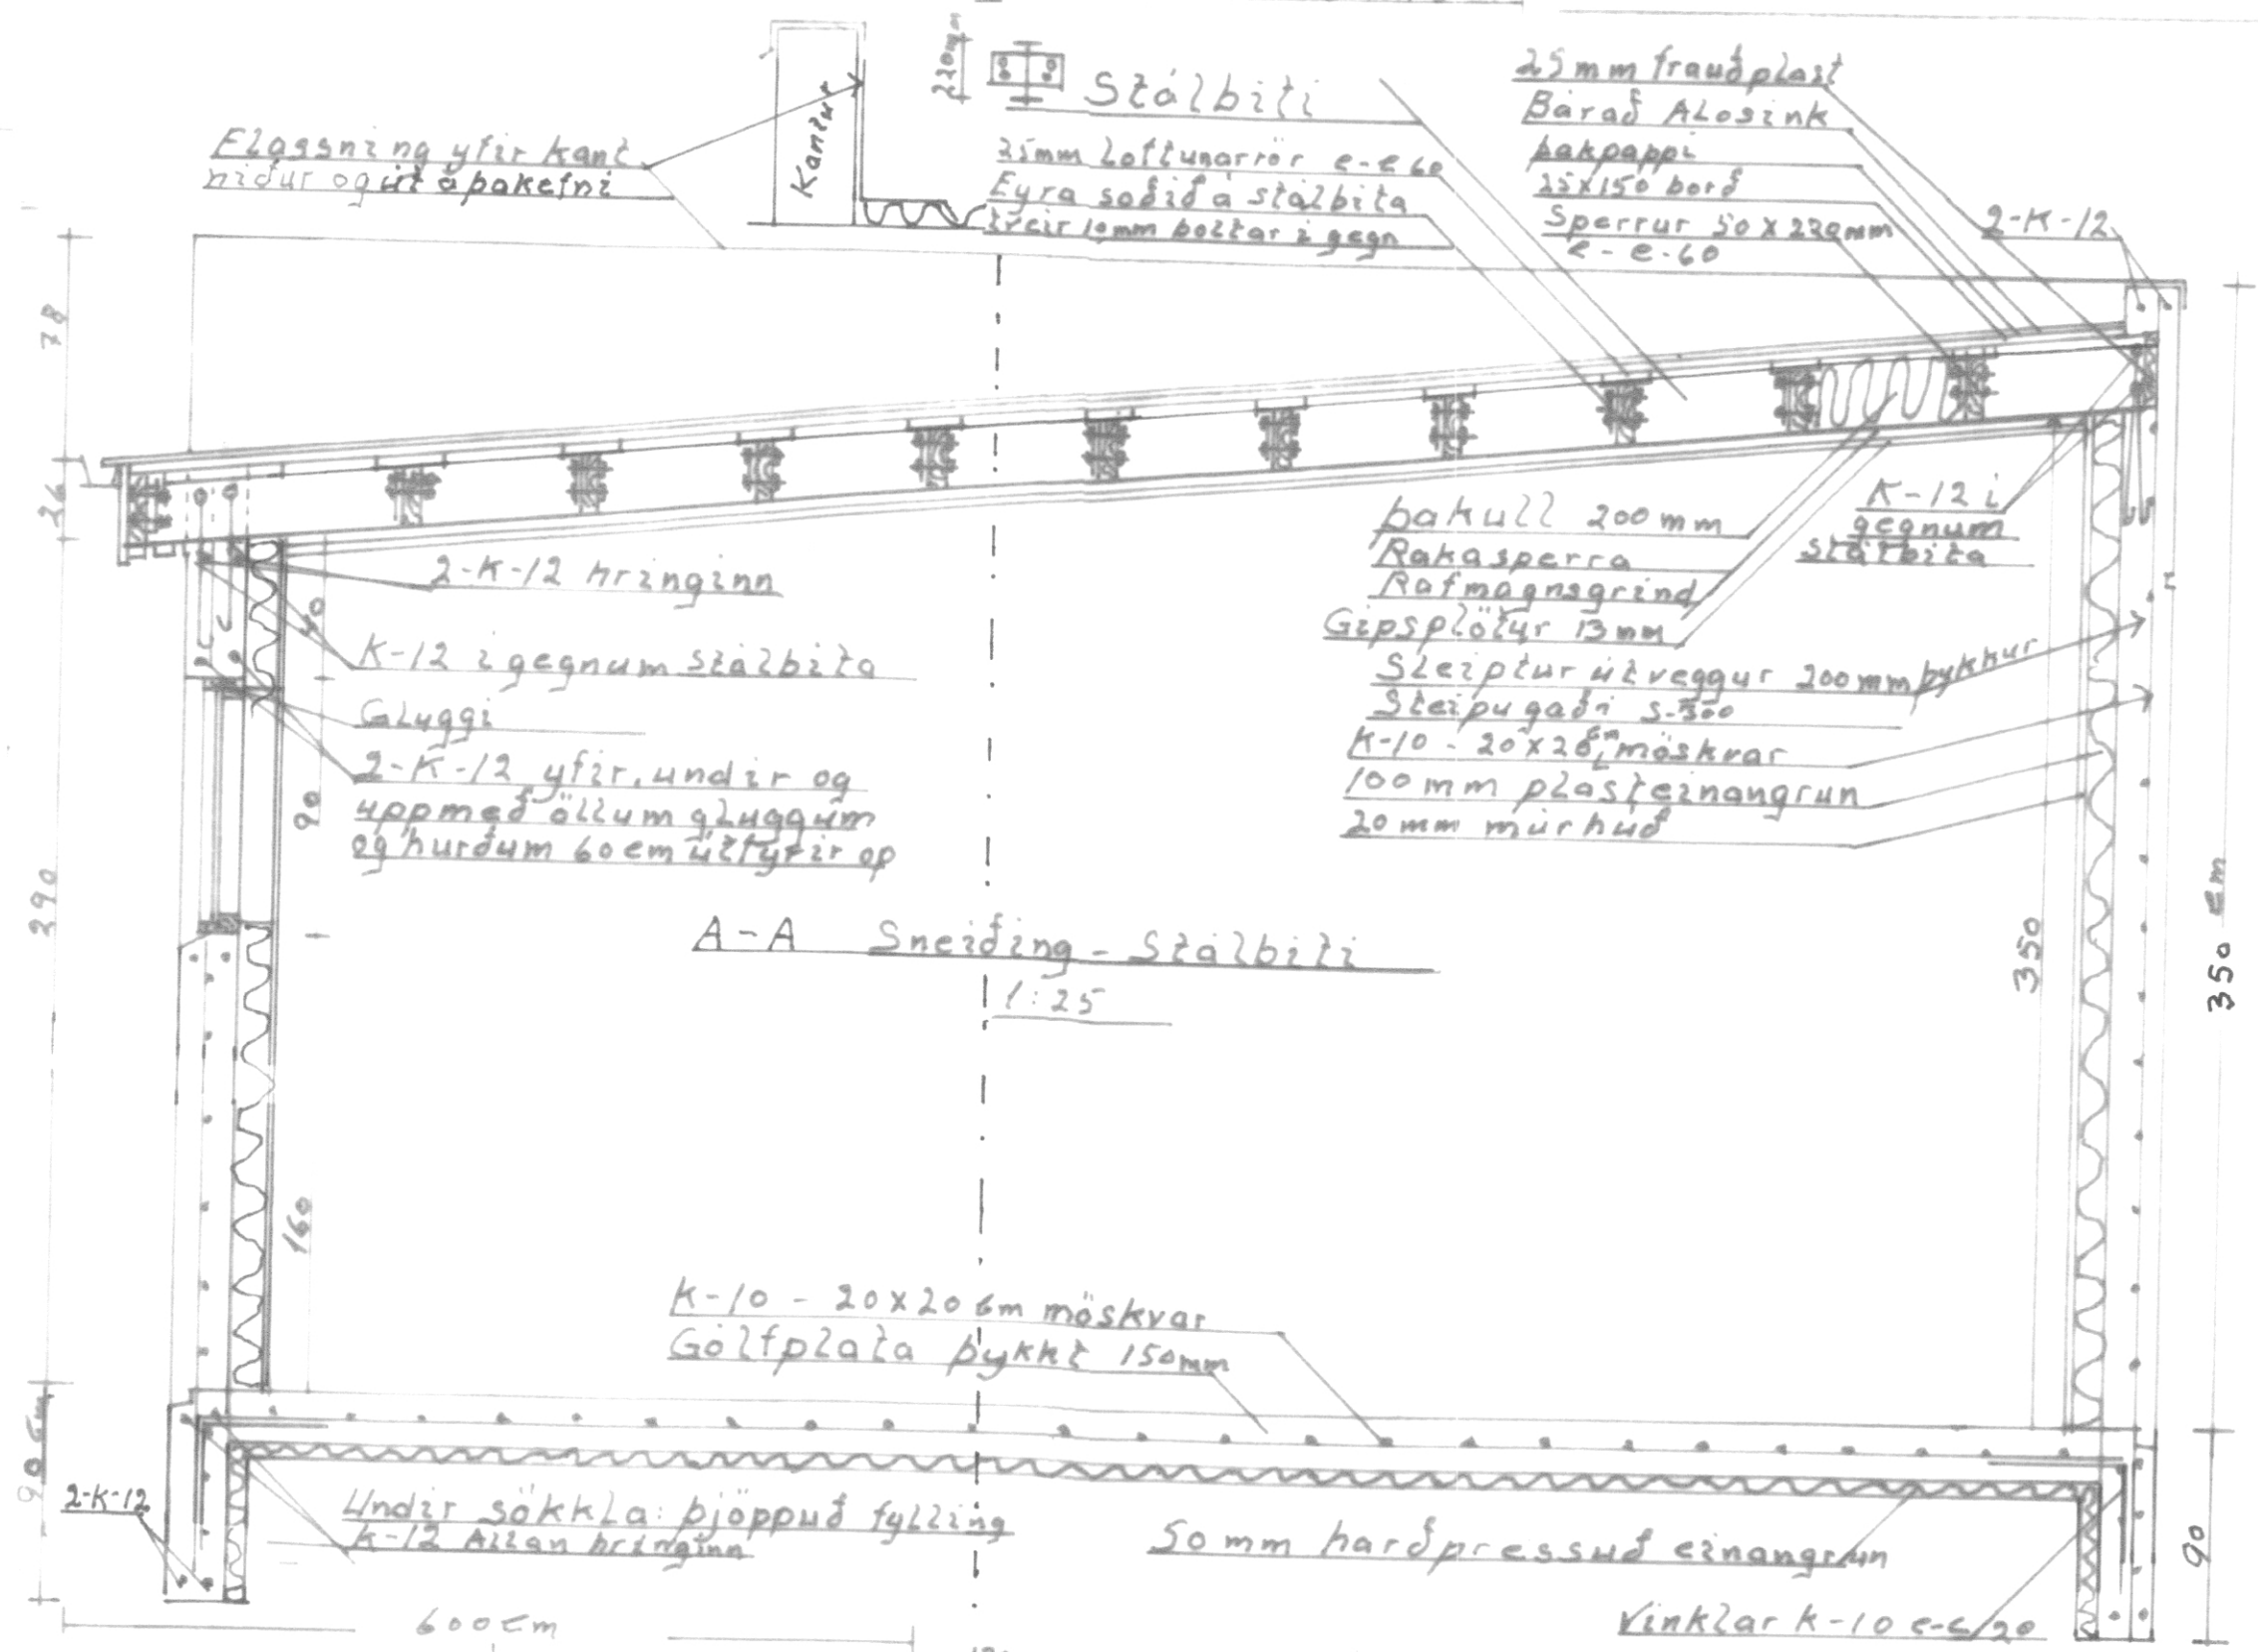 220mm
Stálbiti
Kantur
Flassning yfir kant
niður og út á þakefni
25mm Loftunarrör e-e 60
Eyra soðið á stálbita
tveir 10mm boltar í gegn
25mm frauðplast
Bárað ALosink
þakpappi
25x150 borð
Sperrur 50x220mm
e-e-60
2-K-12
78
36
290
90 cm
þakull 200mm
Rakasperra
Rafmagnsgrind
Gipsplötur 13mm
K-12 í
gegnum
stálbita
2-K-12 hringinn
40
K-12 í gegnum stálbita
Gluggi
2-K-12 yfir, undir og
uppmeð öllum gluggum
og hurðum 60cm útfyrir op
90
160
Steiptur útveggur 200mm þykkur
Steipugæði S-300
K-10 - 20x20cm möskvar
100mm plasteinangrun
20mm múrhúð
A-A Sneiðing - Stálbiti
1:25
350
350 cm
K-10 - 20x20cm möskvar
Gólfplata þykkt 150mm
2-K-12
Undir sökkla: þjöppuð fylling
K-12 Allan hringinn
50mm harðpressuð einangrun
90
Vinklar K-10 e-e/20
600cm